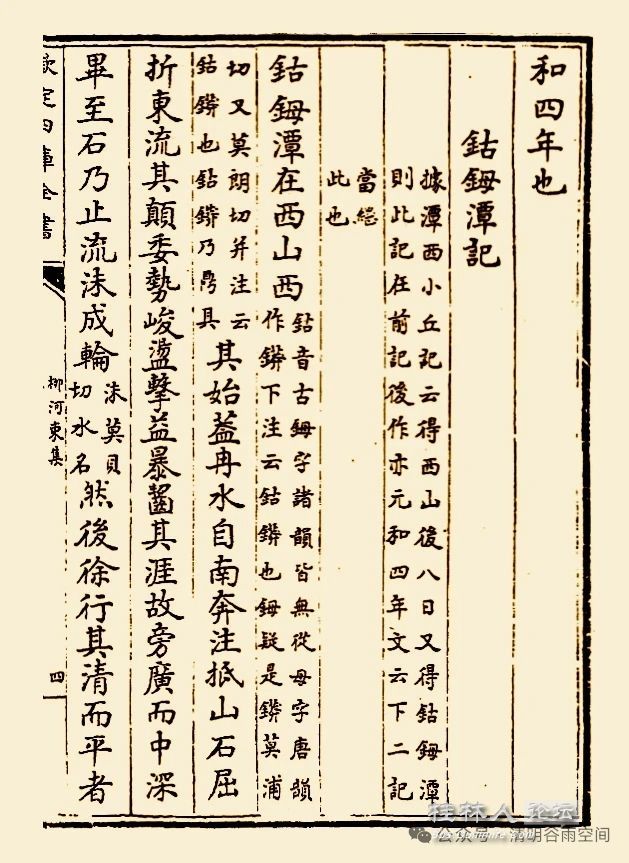 和四年也
鈷鉧潭記
據潭西小丘記云得西山後八日又得鈷鉧潭
則此記在前記後作亦元和四年文云下二記
當
此也
鈷鉧潭在西山西
鈷音古鉧字諸韻皆無從母字唐韻
作䥈下注云鈷䥈也鉧疑是䥈莫浦
切又莫朗切并注云
鈷䥈也鈷䥈乃鼎具
其始葢冉水自南奔注抵山石屈
折東流其顛委勢峻盪擊益暴齧其涯故旁廣而中深
畢至石乃止流沫成輪
沫莫貝
切水名
然後徐行其清而平者
欽定四庫全書
柳河東集
四
桂林人论坛
公众号 · 清明谷雨空间